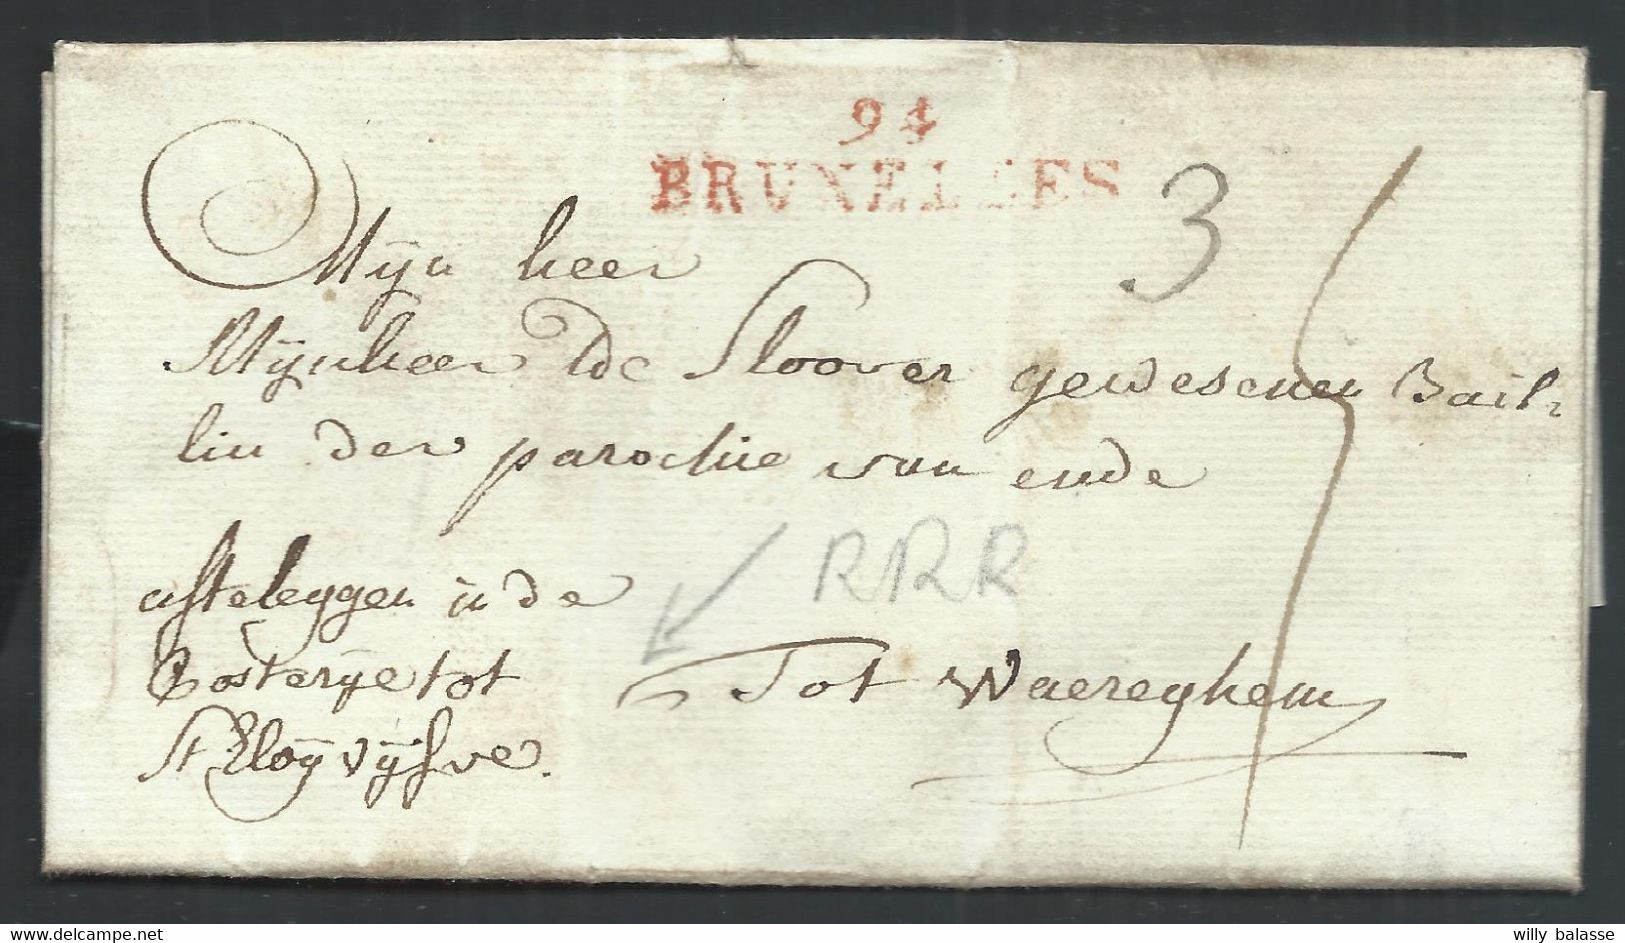 94
BRUXELLES
3
Mÿn heer
Mÿnheer De Sloover gewesenen Bail=
liu der parochie van ende
RRR
afteleggen in de
Posterÿe tot
Tot Waereghem
St Eloÿ vÿfve.
willy balasse